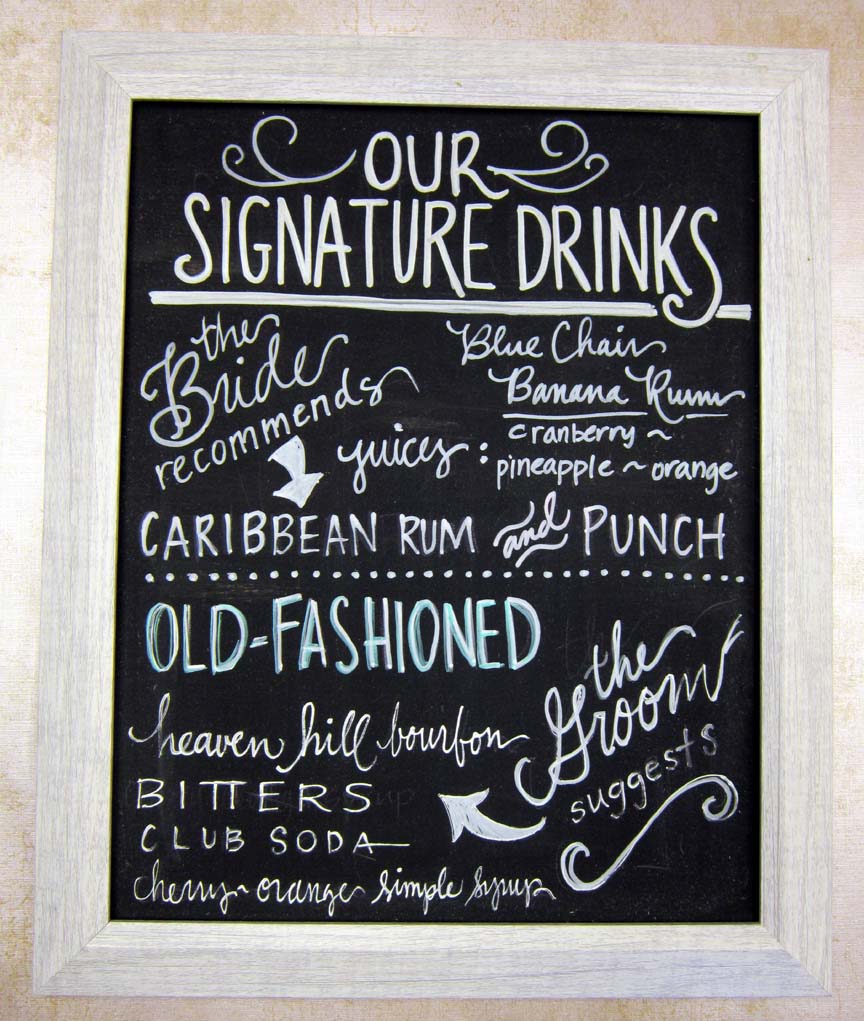 OUR
SIGNATURE DRINKS
the
Bride
recommends
Blue Chair
Banana Rum
juices: cranberry ~
pineapple ~ orange
CARIBBEAN RUM and PUNCH
OLD-FASHIONED
the
Groom
suggests
heaven hill bourbon
BITTERS
CLUB SODA
cherry ~ orange simple syrup